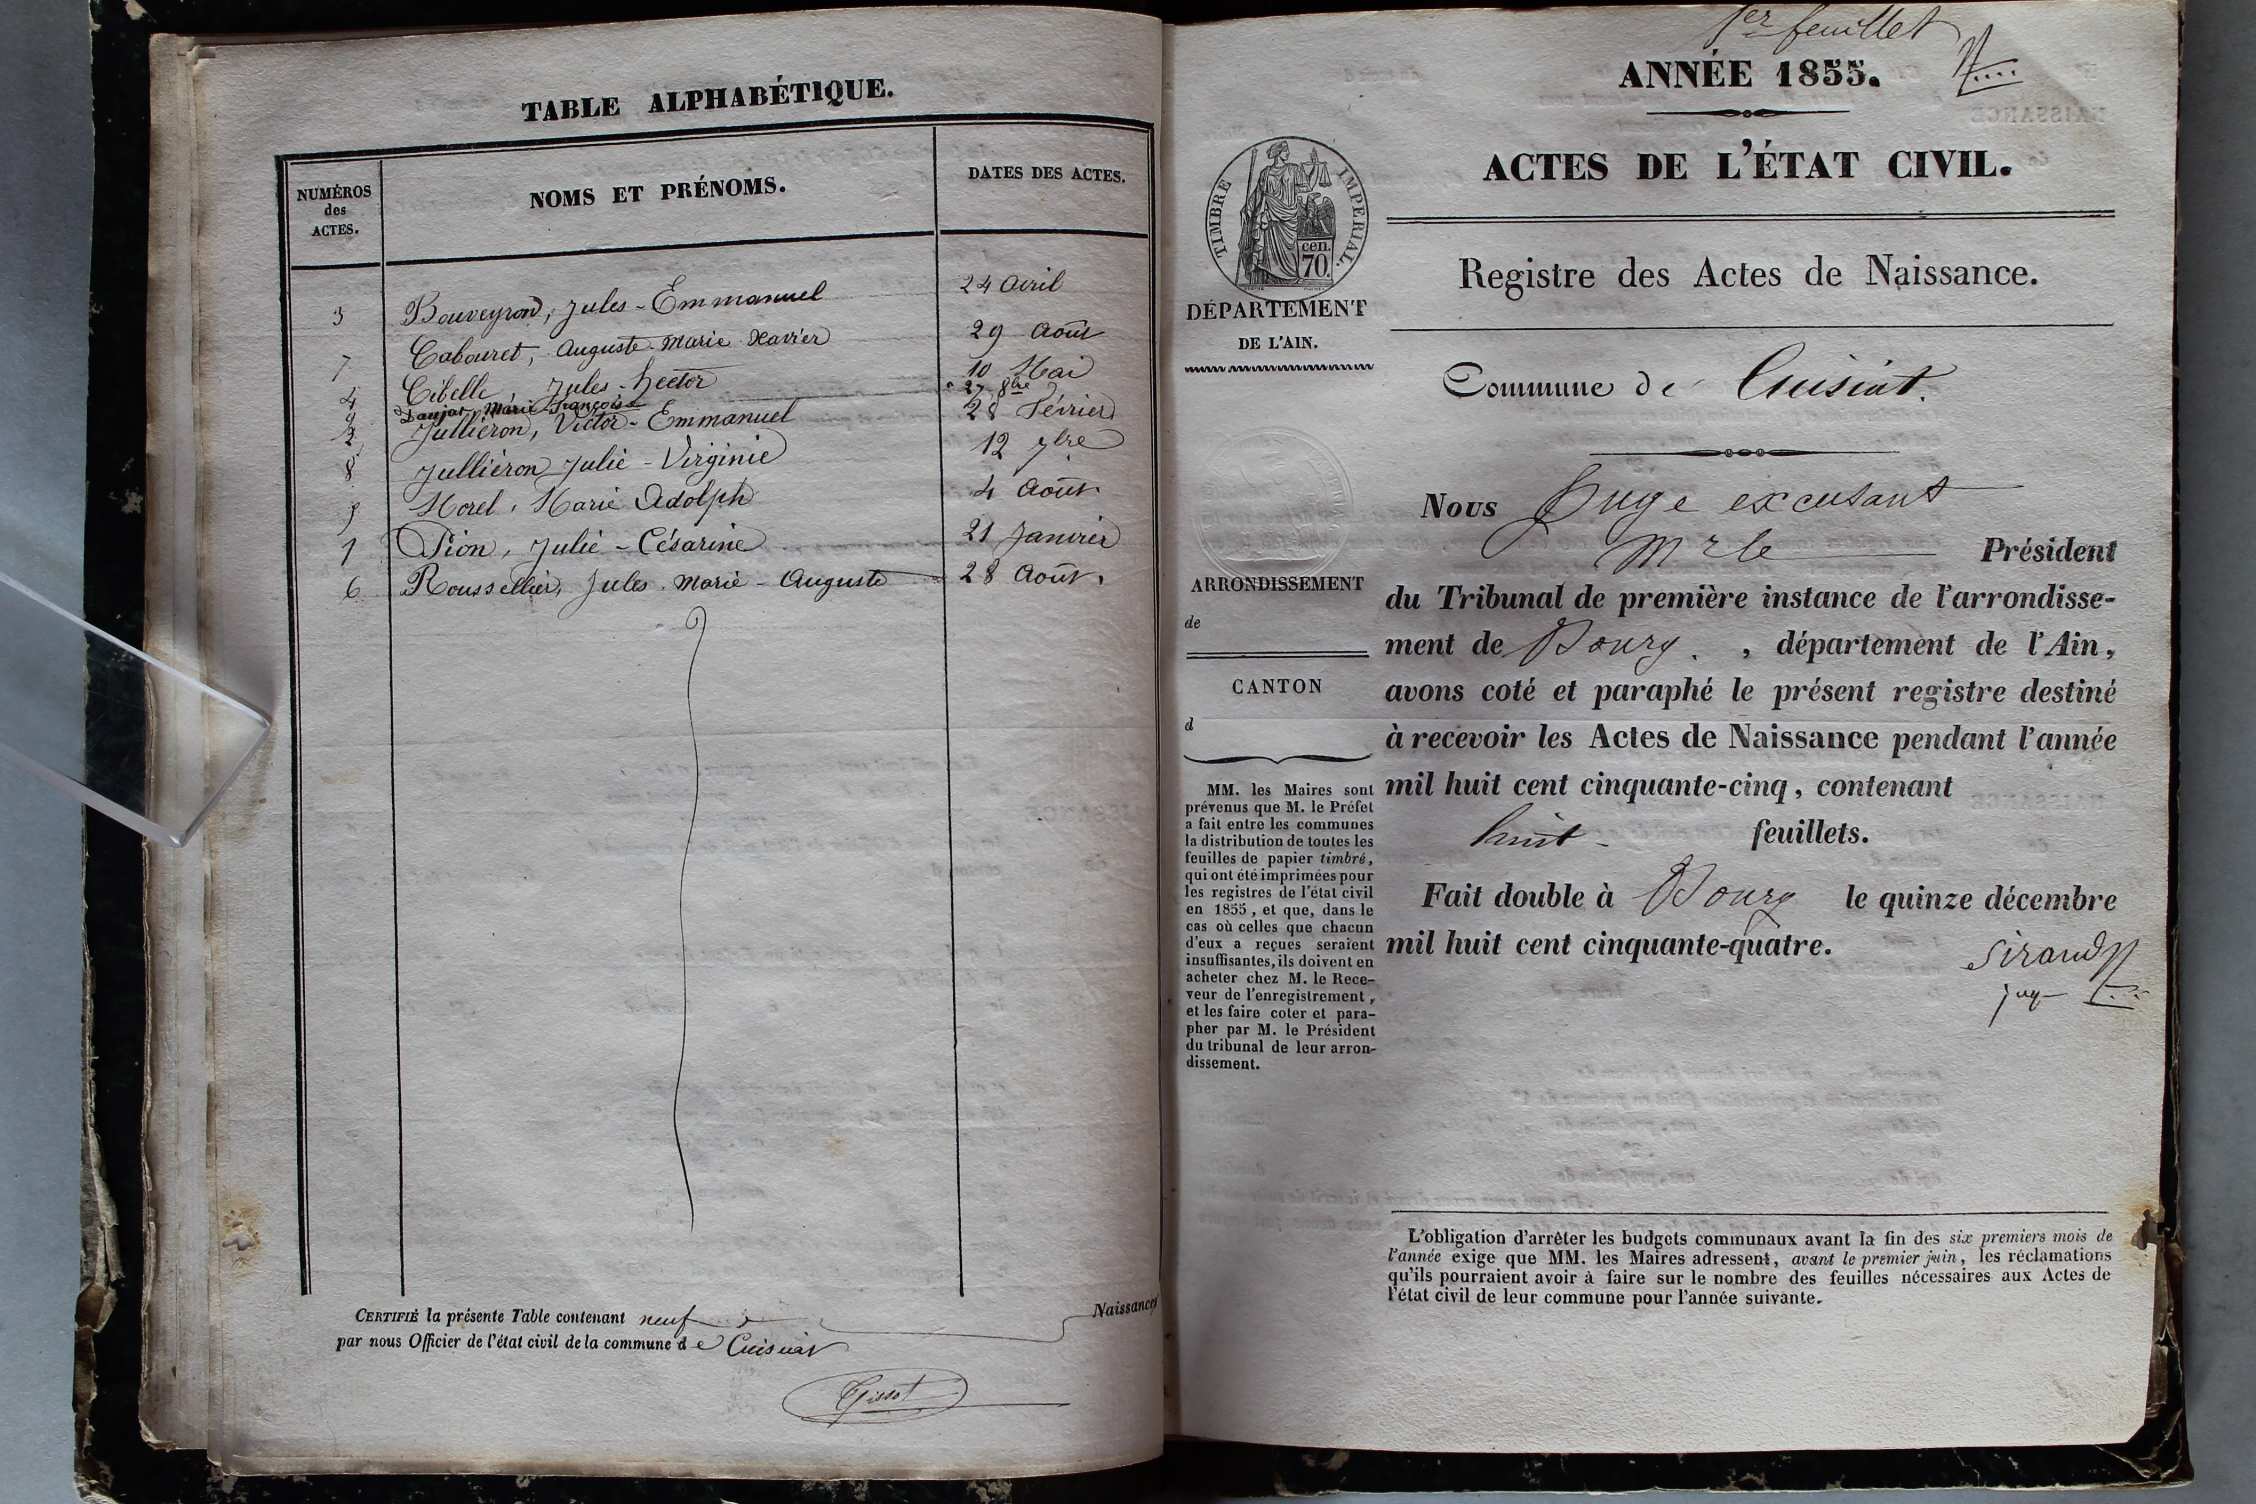 TABLE ALPHABÉTIQUE.
NUMÉROS des ACTES.
NOMS ET PRÉNOMS.
DATES DES ACTES.
3 Bouveyron, Jules-Emmanuel 24 Avril
7 Cabouret, Auguste-Marie-Xavier 29 Août
4 Cibelle Jules-hector 10 Mai
Daujat Marie Françoise 27 8bre
2 Jullièron, Victor-Emmanuel 28 Février
8 Jullièron Julie-Virginie 12 7bre
5 Morel, Marie Adolph 4 Août
1 Pion, Julie-Césarine 21 Janvier
6 Rousselier, Jules-Marie-Auguste 28 Août.
CERTIFIÉ la présente Table contenant neuf Naissances
par nous Officier de l'état civil de la commune de Cuisiat
1er feuillet
ANNÉE 1855.
ACTES DE L'ÉTAT CIVIL.
Registre des Actes de Naissance.
TIMBRE IMPERIAL.
cen.
70.
DÉPARTEMENT
DE L'AIN.
ARRONDISSEMENT
de
CANTON
d
MM. les Maires sont
prévenus que M. le Préfet
a fait entre les communes
la distribution de toutes les
feuilles de papier timbré,
qui ont été imprimées pour
les registres de l'état civil
en 1855, et que, dans le
cas où celles que chacun
d'eux a reçues seraient
insuffisantes, ils doivent en
acheter chez M. le Rece-
veur de l'enregistrement,
et les faire coter et para-
pher par M. le Président
du tribunal de leur arron-
dissement.
Commune de Cuisiat.
Nous Juge excusant
Mr le Président
du Tribunal de première instance de l'arrondisse-
ment de Bourg. , département de l'Ain,
avons coté et paraphé le présent registre destiné
à recevoir les Actes de Naissance pendant l'année
mil huit cent cinquante-cinq, contenant
huit feuillets.
Fait double à Bourg le quinze décembre
mil huit cent cinquante-quatre.
Sirand
juge
L'obligation d'arrêter les budgets communaux avant la fin des six premiers mois de
l'année exige que MM. les Maires adressent, avant le premier juin, les réclamations
qu'ils pourraient avoir à faire sur le nombre des feuilles nécessaires aux Actes de
l'état civil de leur commune pour l'année suivante.